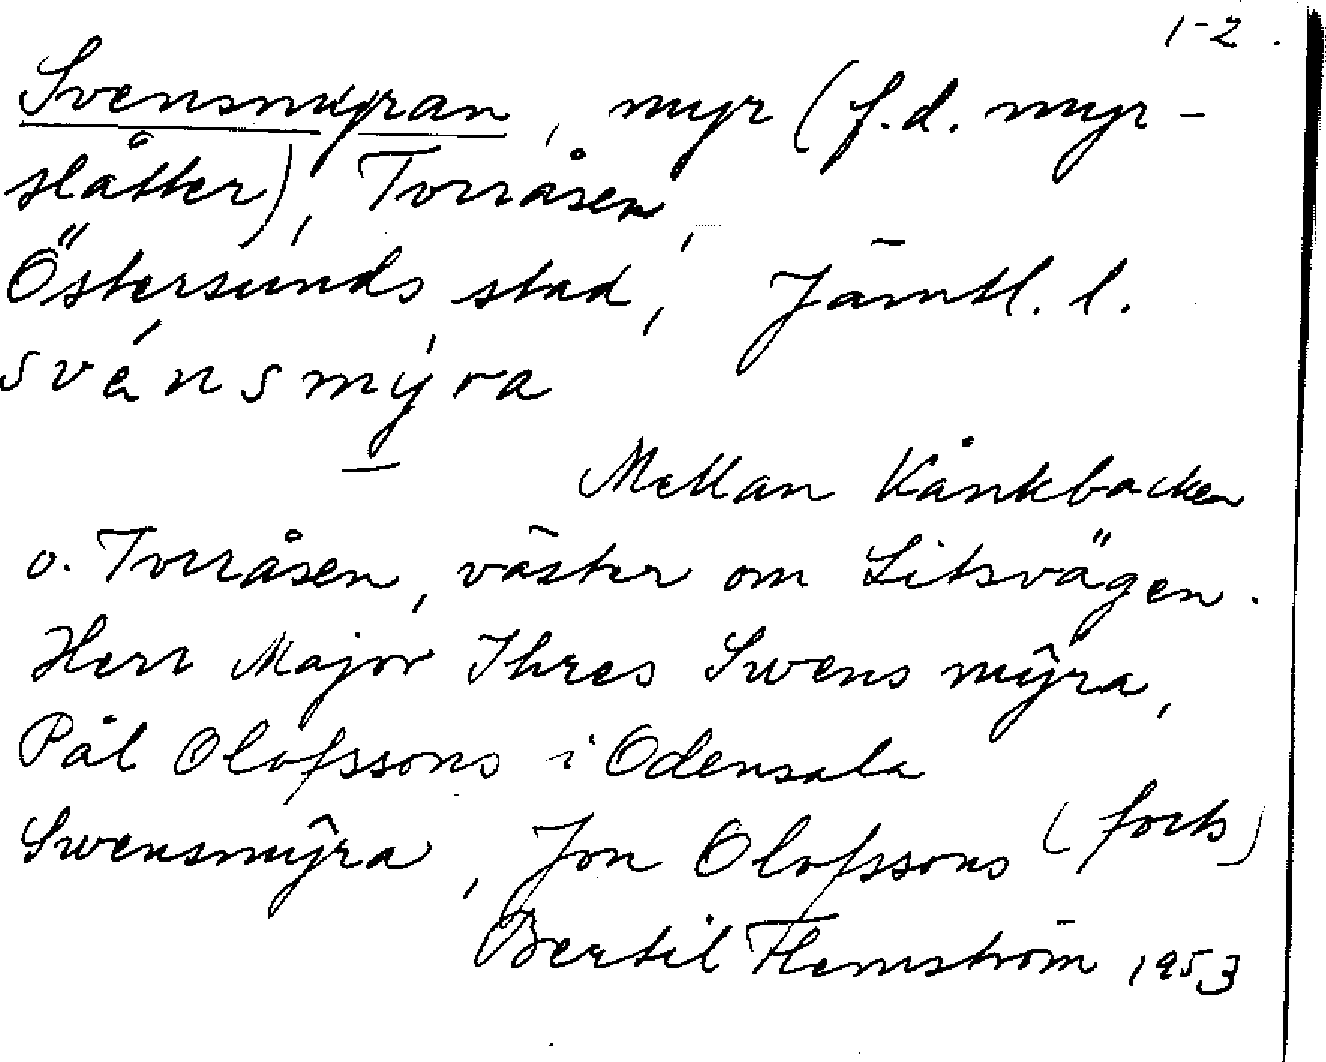 1-2.
Svensmyran, myr (f.d. myr-
slåtter), Torråsen,
Östersunds stad, Jämtl. l.
svénsmỳra
Mellan Kånkbacken
o. Torråsen, väster om Litsvägen.
Herr Major Ihres Swens mÿra,
Pål Olofssons i Odensala
Swensmÿra, Jon Olofssons (forts)
Bertil Flemström 1953